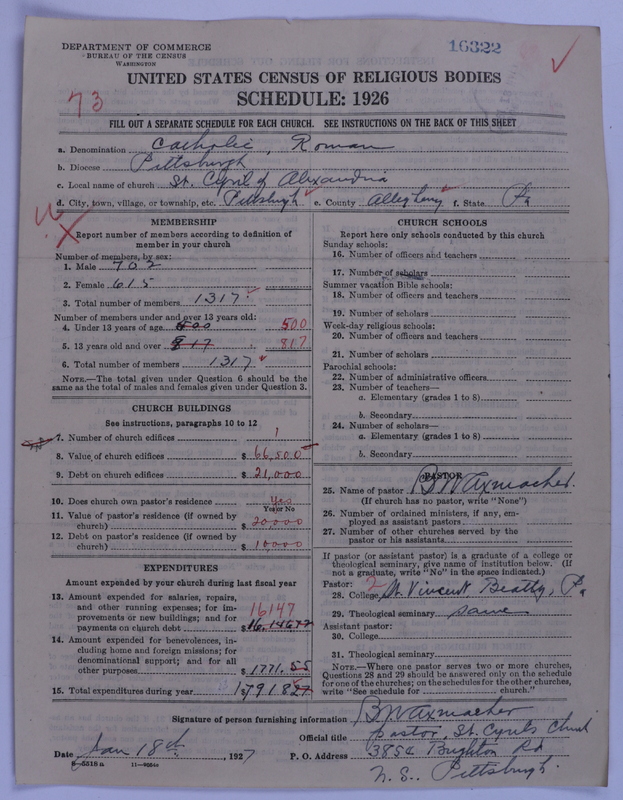 16322
DEPARTMENT OF COMMERCE
BUREAU OF THE CENSUS
WASHINGTON
UNITED STATES CENSUS OF RELIGIOUS BODIES
73
SCHEDULE: 1926
FILL OUT A SEPARATE SCHEDULE FOR EACH CHURCH. SEE INSTRUCTIONS ON THE BACK OF THIS SHEET
a. Denomination Catholic, Roman
b. Diocese Pittsburgh
c. Local name of church St. Cyril of Alexandria
d. City, town, village, or township, etc. Pittsburgh e. County Allegheny f. State Pa
MEMBERSHIP
Report number of members according to definition of
member in your church
Number of members, by sex:
1. Male 702
2. Female 615
3. Total number of members 1317
Number of members under and over 13 years old:
4. Under 13 years of age 500 500
5. 13 years old and over 817 817
6. Total number of members 1317
NOTE.—The total given under Question 6 should be
same as the total of males and females given under Question 3.
CHURCH BUILDINGS
See instructions, paragraphs 10 to 12
7. Number of church edifices 1
8. Value of church edifices $ 66,500
9. Debt on church edifices $ 21,000
10. Does church own pastor's residence Yes
Yes or No
11. Value of pastor's residence (if owned by
church) $ 20000
12. Debt on pastor's residence (if owned by
church) $ 10000
EXPENDITURES
Amount expended by your church during last fiscal year
13. Amount expended for salaries, repairs,
and other running expenses; for im-
provements or new buildings; and for
payments on church debt 16147
14. Amount expended for benevolences, in-
cluding home and foreign missions; for
denominational support; and for all
other purposes $ 1771.55
15. Total expenditures during year
CHURCH SCHOOLS
Report here only schools conducted by this church
Sunday schools:
16. Number of officers and teachers
17. Number of scholars
Summer vacation Bible schools:
18. Number of officers and teachers
19. Number of scholars
Week-day religious schools:
20. Number of officers and teachers
21. Number of scholars
Parochial schools:
22. Number of administrative officers
23. Number of teachers—
a. Elementary (grades 1 to 8)
b. Secondary
24. Number of scholars—
a. Elementary (grades 1 to 8)
b. Secondary
PASTOR
25. Name of pastor
(If church has no pastor, write "None")
26. Number of ordained ministers, if any, em-
ployed as assistant pastors
27. Number of other churches served by the
pastor or his assistants
If pastor (or assistant pastor) is a graduate of a college or
theological seminary, give name of institution below. (If
not a graduate, write "No" in the space indicated.)
Pastor: 2
28. College St. Vincent Beatty, Pa
29. Theological seminary same
Assistant pastor:
30. College
31. Theological seminary
NOTE.—Where one pastor serves two or more churches,
Questions 28 and 29 should be answered only on the schedule
for one of the churches; on the schedules for the other churches,
write "See schedule for church."
Signature of person furnishing information
Official title Pastor, St. Cyrils Church
Date Jan 18th, 1927 P. O. Address 3854 Brighton Rd
N. S., Pittsburgh.